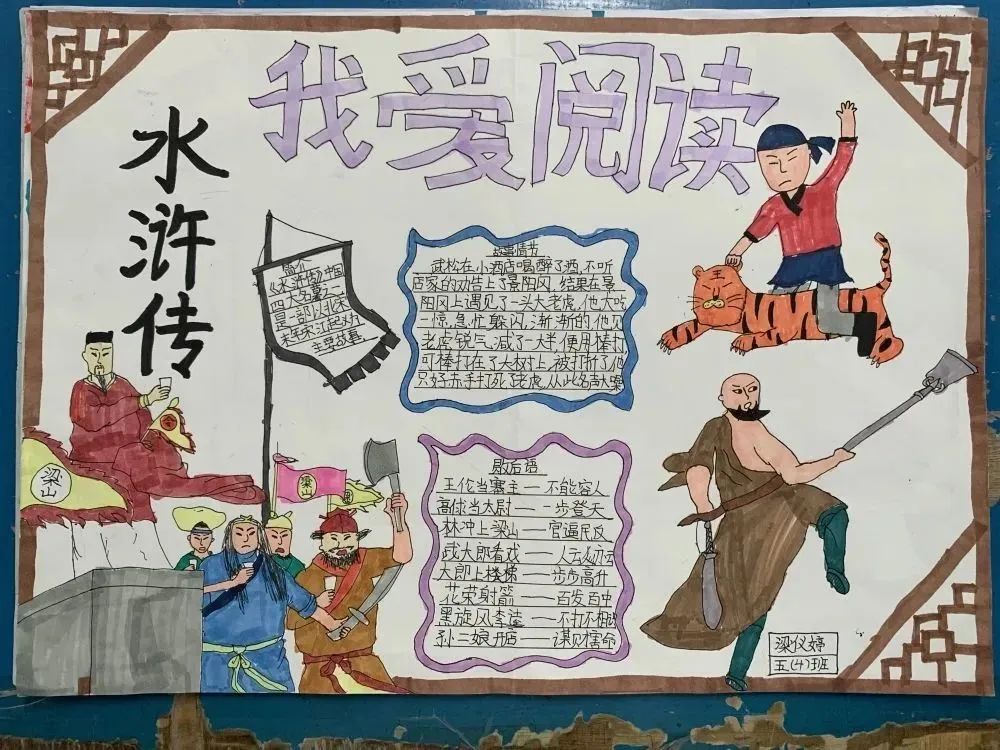 我爱阅读
水浒传
简介
《水浒传》中国
四大名著之一
是一部以北宋
末年宋江起义为
主要故事
故事情节
武松在小酒店喝醉了酒,不听
店家的劝告上了景阳冈,结果在景
阳冈上遇见了一头大老虎,他大吃
一惊,急忙躲闪,渐渐的,他见
老虎锐气减了一大半,便用棒打
可棒打在了大树上,被打折了他
只好赤手打死了老虎,从此名声大噪
歇后语
王伦当寨主——不能容人
高俅当太尉——一步登天
林冲上梁山——官逼民反
武大郎看戏——人云亦云
大郎上楼梯——步步高升
花荣射箭——百发百中
黑旋风李逵——不打不相
孙二娘开店——谋财害命
梁山
梁山
梁仪婷
五(4)班